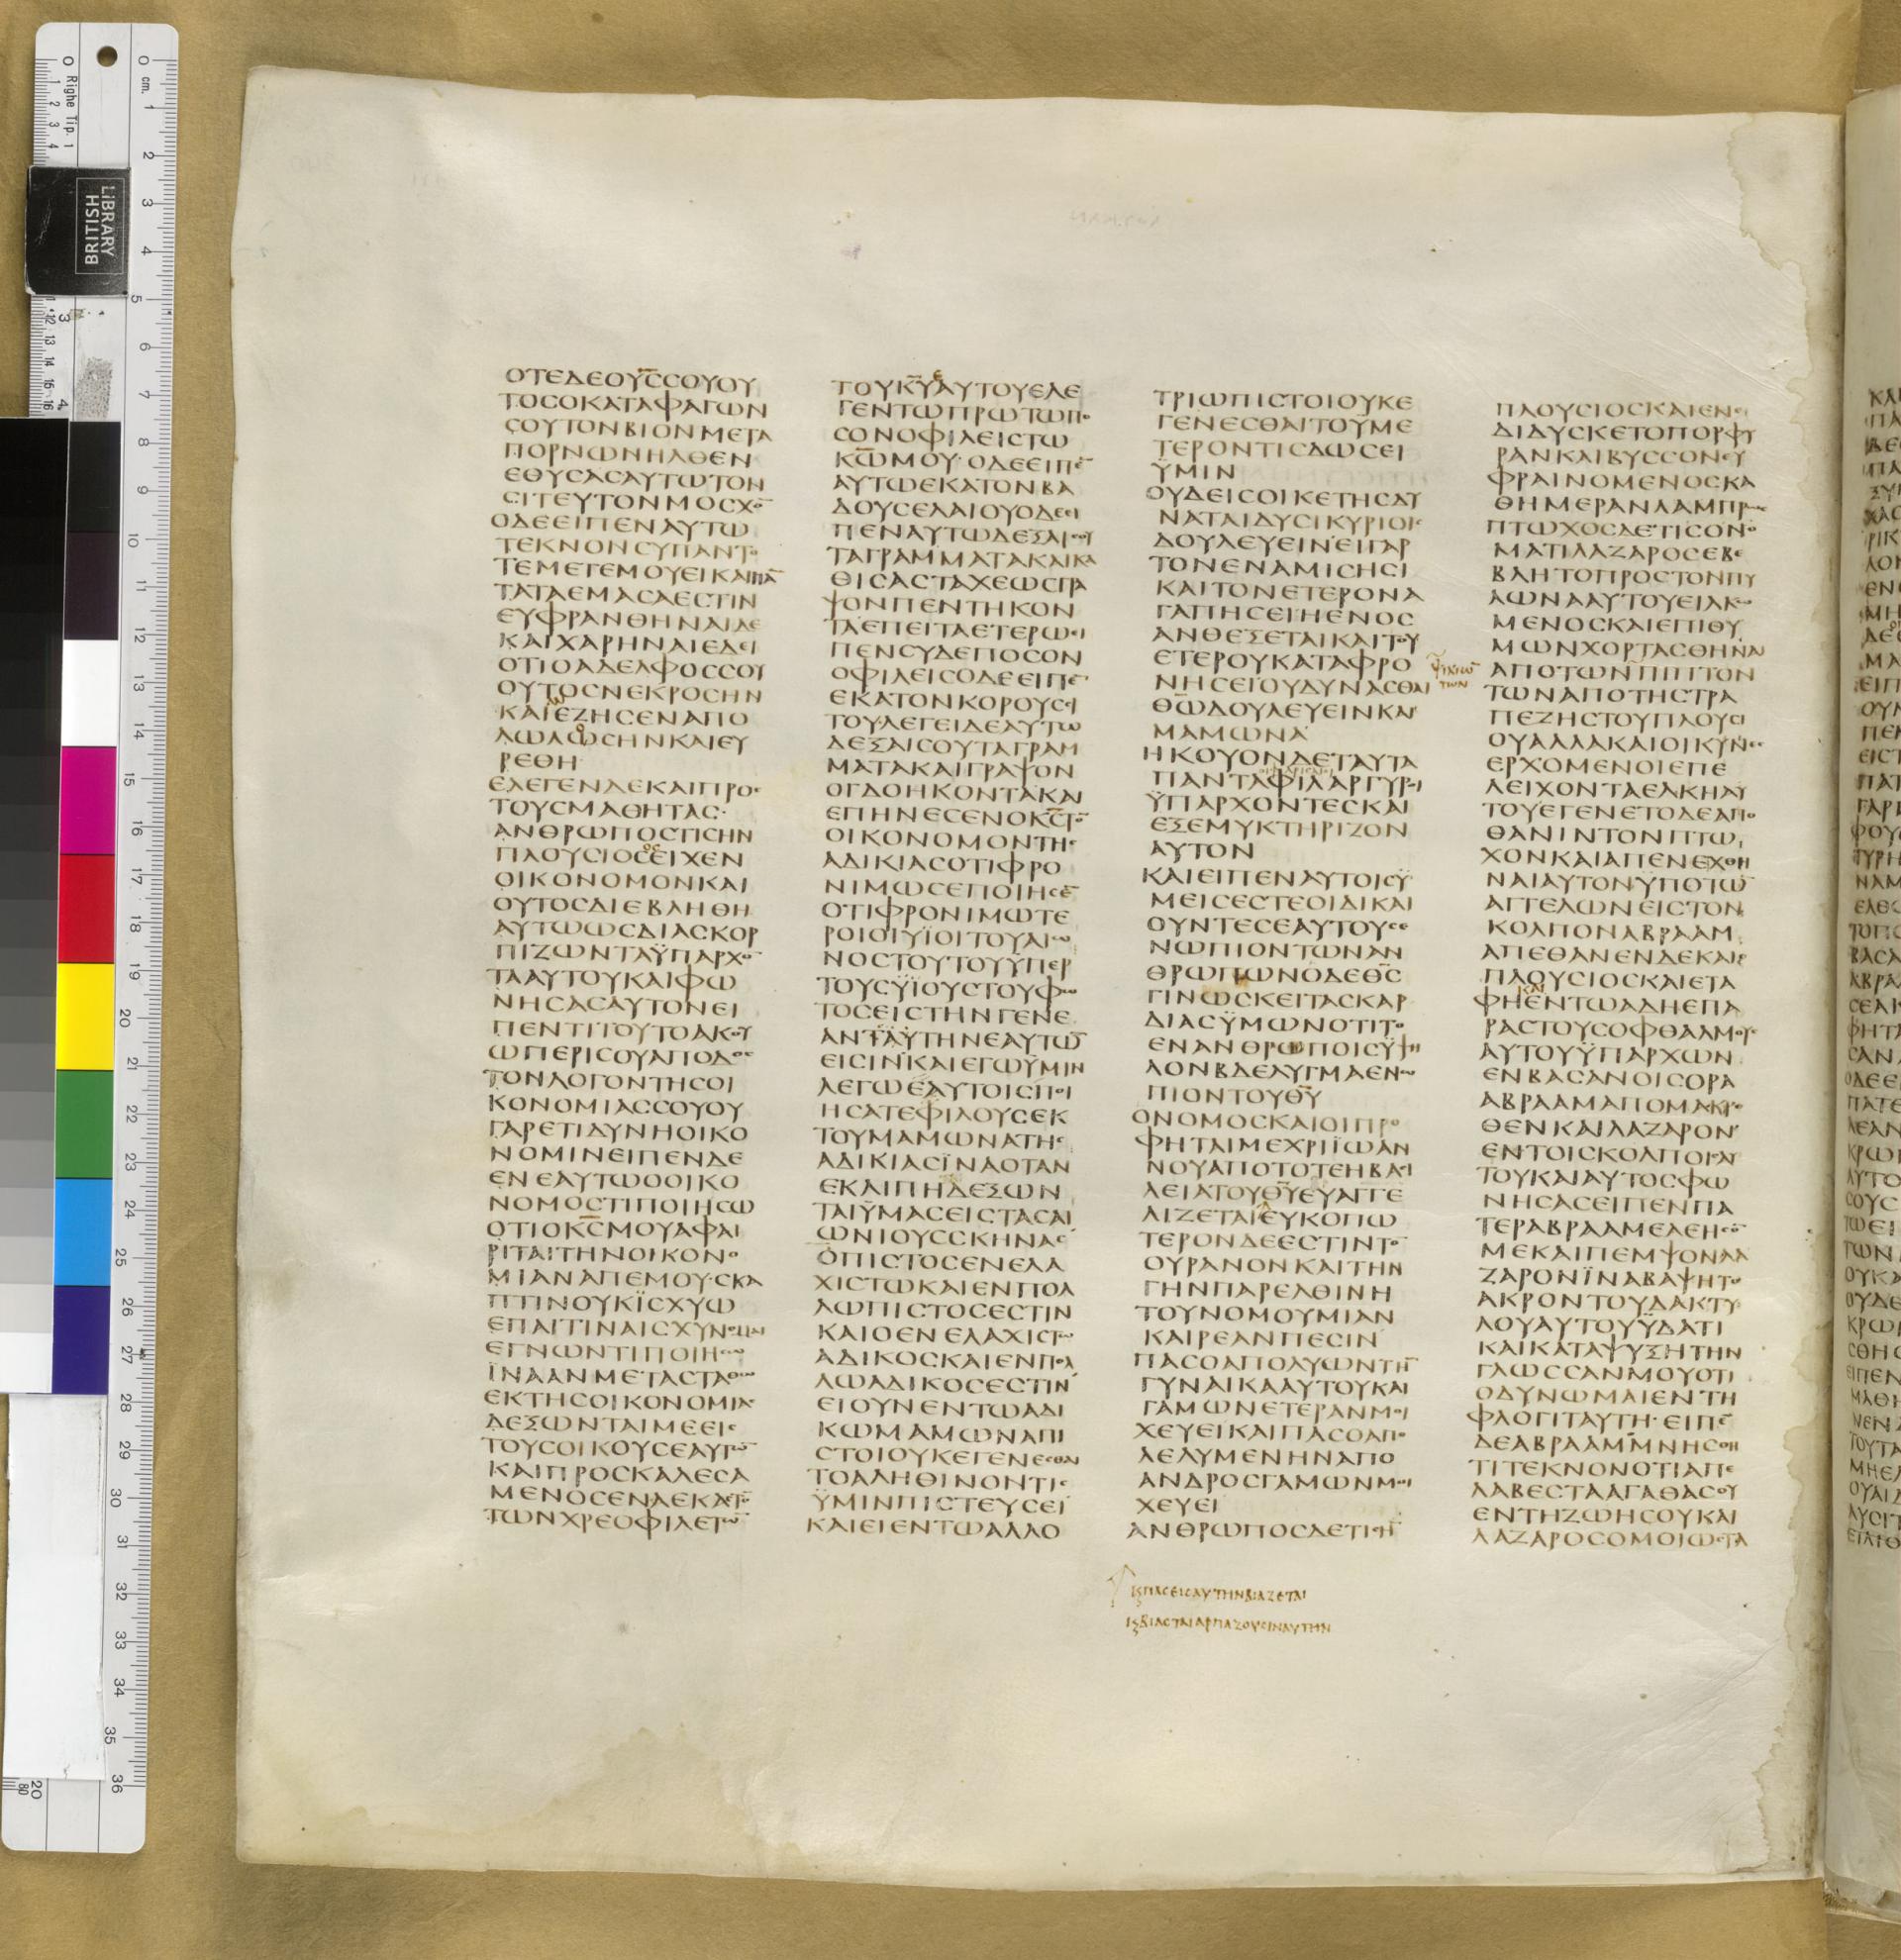 ΟΤΕΔΕΟΥ̅Ϲ̅ϹΟΥΟΥ
ΤΟϹΟΚΑΤΑΦΑΓΩΝ
ϹΟΥΤΟΝΒΙΟΝΜΕΤΑ
ΠΟΡΝΩΝΗΛΘΕΝ
ΕΘΥϹΑϹΑΥΤΩΤΟΝ
ϹΙΤΕΥΤΟΝΜΟϹΧΟ̅
ΟΔΕΕΙΠΕΝΑΥΤΩ
ΤΕΚΝΟΝϹΥΠΑΝΤΟ
ΤΕΜΕΤΕΜΟΥΕΙΚΑΙΠΑ̅
ΤΑΤΑΕΜΑϹΑΕϹΤΙΝ
ΕΥΦΡΑΝΘΗΝΑΙΔΕ
ΚΑΙΧΑΡΗΝΑΙΕΔΕΙ
ΟΤΙΟΑΔΕΛΦΟϹϹΟΥ
ΟΥΤΟϹΝΕΚΡΟϹΗΝ
ΚΑΙΕΖΗϹΕΝΑΠΟ
ΛΩΛΩϹΗΝΚΑΙΕΥ
ΡΕΘΗ
ΕΛΕΓΕΝΔΕΚΑΙΠΡΟ
ΤΟΥϹΜΑΘΗΤΑϹ·
ΑΝΘΡΩΠΟϹΤΙϹΗΝ
ΠΛΟΥϹΙΟϹΕΙΧΕΝ
ΟΙΚΟΝΟΜΟΝΚΑΙ
ΟΥΤΟϹΔΙΕΒΛΗΘΗ
ΑΥΤΩΩϹΔΙΑϹΚΟΡ
ΠΙΖΩΝΤΑΫΠΑΡΧΟ̅
ΤΑΑΥΤΟΥΚΑΙΦΩ
ΝΗϹΑϹΑΥΤΟΝΕΙ
ΠΕΝΤΙΤΟΥΤΟΑΚΟΥ
ΩΠΕΡΙϹΟΥΑΠΟΔΟϹ
ΤΟΝΛΟΓΟΝΤΗϹΟΙ
ΚΟΝΟΜΙΑϹϹΟΥΟΥ
ΓΑΡΕΤΙΔΥΝΗΟΙΚΟ
ΝΟΜΙΝΕΙΠΕΝΔΕ
ΕΝΕΑΥΤΩΟΟΙΚΟ
ΝΟΜΟϹΤΙΠΟΙΗϹΩ
ΟΤΙΟΚ̅Ϲ̅ΜΟΥΑΦΑΙ
ΡΙΤΑΙΤΗΝΟΙΚΟΝΟ
ΜΙΑΝΑΠΕΜΟΥ·ϹΚΑ
ΠΤΙΝΟΥΚΪϹΧΥΩ
ΕΠΑΙΤΙΝΑΙϹΧΥΝΟΜΑΙ
ΕΓΝΩΝΤΙΠΟΙΗϹΩ
ΪΝΑΑΝΜΕΤΑϹΤΑΘΩ
ΕΚΤΗϹΟΙΚΟΝΟΜΙΑϹ
ΔΕΞΩΝΤΑΙΜΕΕΙϹ
ΤΟΥϹΟΙΚΟΥϹΕΑΥΤΩ̅
ΚΑΙΠΡΟϹΚΑΛΕϹΑ
ΜΕΝΟϹΕΝΑΕΚΑϹΤΟ̅
ΤΩΝΧΡΕΟΦΙΛΕΤΩ̅
ΤΟΥΚ̅Υ̅ΑΥΤΟΥΕΛΕ
ΓΕΝΤΩΠΡΩΤΩΠΟ
ϹΟΝΟΦΙΛΕΙϹΤΩ
Κ̅Ω̅ΜΟΥ·ΟΔΕΕΙΠΕ̅
ΑΥΤΩΕΚΑΤΟΝΒΑ
ΔΟΥϹΕΛΑΙΟΥΟΔΕΕΙ
ΠΕΝΑΥΤΩΔΕΞΑΙϹΟΥ
ΤΑΓΡΑΜΜΑΤΑΚΑΙΚΑ
ΘΙϹΑϹΤΑΧΕΩϹΓΡΑ
ΨΟΝΠΕΝΤΗΚΟΝ
ΤΑΕΠΕΙΤΑΕΤΕΡΩΕΙ
ΠΕΝϹΥΔΕΠΟϹΟΝ
ΟΦΙΛΕΙϹΟΔΕΕΙΠΕ̅
ΕΚΑΤΟΝΚΟΡΟΥϹϹΙ
ΤΟΥ·ΛΕΓΕΙΔΕΑΥΤΩ
ΔΕΞΑΙϹΟΥΤΑΓΡΑΜ
ΜΑΤΑΚΑΙΓΡΑΨΟΝ
ΟΓΔΟΗΚΟΝΤΑΚΑΙ
ΕΠΗΝΕϹΕΝΟΚ̅Ϲ̅ΤΟ̅
ΟΙΚΟΝΟΜΟΝΤΗϹ
ΑΔΙΚΙΑϹΟΤΙΦΡΟ
ΝΙΜΩϹΕΠΟΙΗϹΕ̅
ΟΤΙΦΡΟΝΙΜΩΤΕ
ΡΟΙΟΙΥΪΟΙΤΟΥΑΙΩ
ΝΟϹΤΟΥΤΟΥΫΠΕΡ
ΤΟΥϹΥΪΟΥϹΤΟΥΦΩ
ΤΟϹΕΙϹΤΗΝΓΕΝΕ
ΑΝΤΑΥΤΗΝΕΑΥΤΩ̅
ΕΙϹΙΝΚΑΙΕΓΩΫΜΙΝ
ΛΕΓΩΕΑΥΤΟΙϹΠΟΙ
ΗϹΑΤΕΦΙΛΟΥϹΕΚ
ΤΟΥΜΑΜΩΝΑΤΗϹ
ΑΔΙΚΙΑϹΪΝΑΟΤΑΝ
ΕΚΛΙΠΗΔΕΞΩΝ
ΤΑΙΫΜΑϹΕΙϹΤΑϹΑΙ
ΩΝΙΟΥϹϹΚΗΝΑϹ
ΟΠΙϹΤΟϹΕΝΕΛΑ
ΧΙϹΤΩΚΑΙΕΝΠΟΛ
ΛΩΠΙϹΤΟϹΕϹΤΙΝ
ΚΑΙΟΕΝΕΛΑΧΙϹΤΩ
ΑΔΙΚΟϹΚΑΙΕΝΠΟΛ
ΛΩΑΔΙΚΟϹΕϹΤΙΝ
ΕΙΟΥΝΕΝΤΩΑΔΙ
ΚΩΜΑΜΩΝΑΠΙ
ϹΤΟΙΟΥΚΕΓΕΝΕϹΘΑΙ
ΤΟΑΛΗΘΙΝΟΝΤΙϹ
ΫΜΙΝΠΙϹΤΕΥϹΕΙ
ΚΑΙΕΙΕΝΤΩΑΛΛΟ
ΤΡΙΩΠΙϹΤΟΙΟΥΚΕ
ΓΕΝΕϹΘΑΙΤΟΥΜΕ
ΤΕΡΟΝΤΙϹΔΩϹΕΙ
ΫΜΙΝ
ΟΥΔΕΙϹΟΙΚΕΤΗϹΔΥ
ΝΑΤΑΙΔΥϹΙΚΥΡΙΟΙϹ
ΔΟΥΛΕΥΕΙΝΕΙΓΑΡ
ΤΟΝΕΝΑΜΙϹΗϹΙ
ΚΑΙΤΟΝΕΤΕΡΟΝΑ
ΓΑΠΗϹΕΙΗΕΝΟϹ
ΑΝΘΕΞΕΤΑΙΚΑΙΤΟΥ
ΕΤΕΡΟΥΚΑΤΑΦΡΟ
ΝΗϹΕΙΟΥΔΥΝΑϹΘΑΙ
Θ̅Ω̅ΔΟΥΛΕΥΕΙΝΚΑΙ
ΜΑΜΩΝΑ
ΗΚΟΥΟΝΔΕΤΑΥΤΑ
ΠΑΝΤΑΦΙΛΑΡΓΥΡΟΙ
ΫΠΑΡΧΟΝΤΕϹΚΑΙ
ΕΞΕΜΥΚΤΗΡΙΖΟΝ
ΑΥΤΟΝ
ΚΑΙΕΙΠΕΝΑΥΤΟΙϹΫ
ΜΕΙϹΕϹΤΕΟΙΔΙΚΑΙ
ΟΥΝΤΕϹΕΑΥΤΟΥϹΕ
ΝΩΠΙΟΝΤΩΝΑΝ
ΘΡΩΠΩΝΟΔΕΘ̅Ϲ̅
ΓΙΝΩϹΚΕΙΤΑϹΚΑΡ
ΔΙΑϹΫΜΩΝΟΤΙΤΟ
ΕΝΑΝΘΡΩΠΟΙϹΫΨΗ
ΛΟΝΒΔΕΛΥΓΜΑΕΝΩ
ΠΙΟΝΤΟΥΘ̅Υ̅
ΟΝΟΜΟϹΚΑΙΟΙΠΡΟ
ΦΗΤΑΙΜΕΧΡΙΪΩΑΝ
ΝΟΥΑΠΟΤΟΤΕΗΒΑϹΙ
ΛΕΙΑΤΟΥΘ̅Υ̅ΕΥΑΓΓΕ
ΛΙΖΕΤΑΙΕΥΚΟΠΩ
ΤΕΡΟΝΔΕΕϹΤΙΝΤΟ̅
ΟΥΡΑΝΟΝΚΑΙΤΗΝ
ΓΗΝΠΑΡΕΛΘΙΝΗ
ΤΟΥΝΟΜΟΥΜΙΑΝ
ΚΑΙΡΕΑΝΠΕϹΙΝ
ΠΑϹΟΑΠΟΛΥΩΝΤΗ̅
ΓΥΝΑΙΚΑΑΥΤΟΥΚΑΙ
ΓΑΜΩΝΕΤΕΡΑΝΜΟΙ
ΧΕΥΕΙΚΑΙΠΑϹΟΑΠΟ
ΛΕΛΥΜΕΝΗΝΑΠΟ
ΑΝΔΡΟϹΓΑΜΩΝΜΟΙ
ΧΕΥΕΙ
ΑΝΘΡΩΠΟϹΔΕΤΙϹΗ̅
ΙϛΠΑϹΕΙϹΑΥΤΗΝΒΙΑΖΕΤΑΙ
ΙϛΒΙΑϹΤΑΙΑΡΠΑΖΟΥϹΙΝΑΥΤΗΝ
ΠΛΟΥϹΙΟϹΚΑΙΕΝΕ
ΔΙΔΥϹΚΕΤΟΠΟΡΦΥ
ΡΑΝΚΑΙΒΥϹϹΟΝΕΥ
ΦΡΑΙΝΟΜΕΝΟϹΚΑ
ΘΗΜΕΡΑΝΛΑΜΠΡΩϹ
ΠΤΩΧΟϹΔΕΤΙϹΟΝΟ
ΜΑΤΙΛΑΖΑΡΟϹΕΒΕ
ΒΛΗΤΟΠΡΟϹΤΟΝΠΥ
ΛΩΝΑΑΥΤΟΥΕΙΛΚΩ
ΜΕΝΟϹΚΑΙΕΠΙΘΥ
ΜΩΝΧΟΡΤΑϹΘΗΝΑΙ
ΑΠΟΤΩΝΠΙΠΤΟΝ
ΤΩΝΑΠΟΤΗϹΤΡΑ
ΠΕΖΗϹΤΟΥΠΛΟΥϹΙ
ΟΥΑΛΛΑΚΑΙΟΙΚΥΝΕϹ
ΕΡΧΟΜΕΝΟΙΕΠΕ
ΛΕΙΧΟΝΤΑΕΛΚΗΑΥ
ΤΟΥΕΓΕΝΕΤΟΔΕΑΠΟ
ΘΑΝΙΝΤΟΝΠΤΩ
ΧΟΝΚΑΙΑΠΕΝΕΧΘΗ
ΝΑΙΑΥΤΟΝΫΠΟΤΩ̅
ΑΓΓΕΛΩΝΕΙϹΤΟΝ
ΚΟΛΠΟΝΑΒΡΑΑΜ
ΑΠΕΘΑΝΕΝΔΕΚΑΙΟ
ΠΛΟΥϹΙΟϹΚΑΙΕΤΑ
ΦΗΕΝΤΩΑΔΗΕΠΑ
ΡΑϹΤΟΥϹΟΦΘΑΛΜΟΥϹ
ΑΥΤΟΥΫΠΑΡΧΩΝ
ΕΝΒΑϹΑΝΟΙϹΟΡΑ
ΑΒΡΑΑΜΑΠΟΜΑΚΡΟ
ΘΕΝΚΑΙΛΑΖΑΡΟΝ
ΕΝΤΟΙϹΚΟΛΠΟΙϹΑΥ
ΤΟΥΚΑΙΑΥΤΟϹΦΩ
ΝΗϹΑϹΕΙΠΕΝΠΑ
ΤΕΡΑΒΡΑΑΜΕΛΕΗϹΟ̅
ΜΕΚΑΙΠΕΜΨΟΝΛΑ
ΖΑΡΟΝΪΝΑΒΑΨΗΤΟ
ΑΚΡΟΝΤΟΥΔΑΚΤΥ
ΛΟΥΑΥΤΟΥΫΔΑΤΙ
ΚΑΙΚΑΤΑΨΥΞΗΤΗΝ
ΓΛΩϹϹΑΝΜΟΥΟΤΙ
ΟΔΥΝΩΜΑΙΕΝΤΗ
ΦΛΟΓΙΤΑΥΤΗ·ΕΙΠΕ̅
ΔΕΑΒΡΑΑΜΜΝΗϹΘΗ
ΤΙΤΕΚΝΟΝΟΤΙΑΠΕ
ΛΑΒΕϹΤΑΑΓΑΘΑϹΟΥ
ΕΝΤΗΖΩΗϹΟΥΚΑΙ
ΛΑΖΑΡΟϹΟΜΟΙΩϹΤΑ